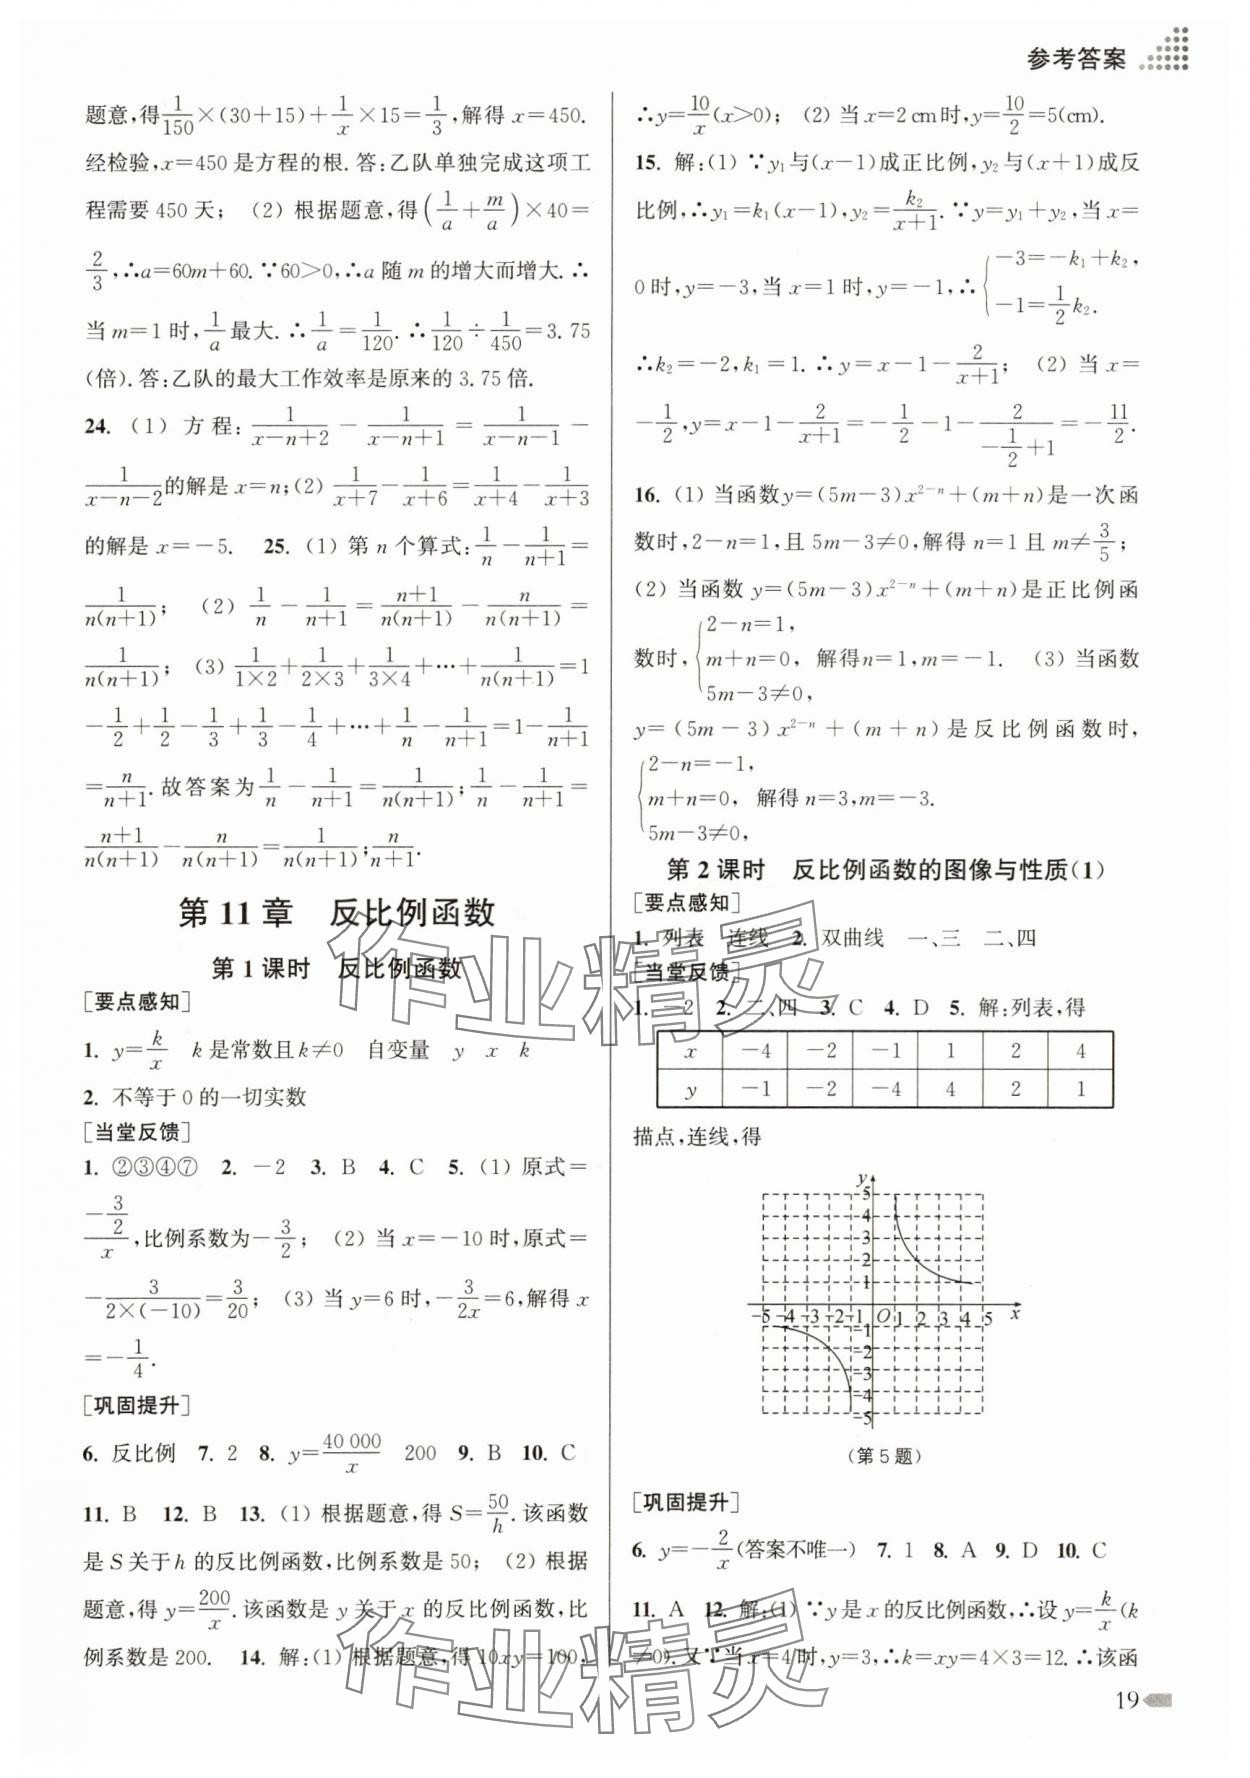 参考答案
题意,得1/150×(30+15)+1/x×15=1/3,解得 x=450.
经检验,x=450 是方程的根.答:乙队单独完成这项工
程需要 450 天; (2) 根据题意,得(1/a+m/a)×40=
2/3,∴a=60m+60.∵60>0,∴a 随 m 的增大而增大.∴
当 m=1 时,1/a最大.∴1/a=1/120.∴1/120÷1/450=3.75
(倍).答:乙队的最大工作效率是原来的 3.75 倍.
24. (1) 方程:1/(x-n+2)-1/(x-n+1)=1/(x-n-1)-
1/(x-n-2)的解是 x=n;(2) 1/(x+7)-1/(x+6)=1/(x+4)-1/(x+3)
的解是 x=-5. 25. (1) 第 n 个算式:1/n-1/(n+1)=
1/(n(n+1)); (2) 1/n-1/(n+1)=(n+1)/(n(n+1))-n/(n(n+1))=
1/(n(n+1)); (3) 1/(1×2)+1/(2×3)+1/(3×4)+…+1/(n(n+1))=1
-1/2+1/2-1/3+1/3-1/4+…+1/n-1/(n+1)=1-1/(n+1)
=n/(n+1).故答案为1/n-1/(n+1)=1/(n(n+1));1/n-1/(n+1)=
(n+1)/(n(n+1))-n/(n(n+1))=1/(n(n+1));n/(n+1).
第 11 章 反比例函数
第 1 课时 反比例函数
[要点感知]
1. y=k/x k 是常数且k≠0 自变量 y x k
2. 不等于 0 的一切实数
[当堂反馈]
1. ②③④⑦ 2. -2 3. B 4. C 5. (1) 原式=
(-3/2)/x,比例系数为-3/2; (2) 当 x=-10 时,原式=
-3/(2×(-10))=3/20; (3) 当 y=6 时,-3/(2x)=6,解得 x
=-1/4.
[巩固提升]
6. 反比例 7. 2 8. y=40 000/x 200 9. B 10. C
11. B 12. B 13. (1) 根据题意,得 S=50/h.该函数
是 S 关于 h 的反比例函数,比例系数是 50; (2) 根据
题意,得 y=200/x.该函数是 y 关于 x 的反比例函数,比
例系数是 200. 14. 解:(1) 根据题意,得 10xy=100,
∴y=10/x(x>0); (2) 当 x=2 cm时,y=10/2=5(cm).
15. 解:(1) ∵y₁与(x-1)成正比例,y₂与(x+1)成反
比例,∴y₁=k₁(x-1),y₂=k₂/(x+1).∵y=y₁+y₂,当 x=
0 时,y=-3,当 x=1 时,y=-1,∴{-3=-k₁+k₂, -1=1/2k₂.
∴k₂=-2,k₁=1.∴y=x-1-2/(x+1); (2) 当 x=
-1/2,y=x-1-2/(x+1)=-1/2-1-2/(-1/2+1)=-11/2.
16. (1) 当函数y=(5m-3)x²⁻ⁿ+(m+n)是一次函
数时,2-n=1,且 5m-3≠0,解得 n=1 且 m≠3/5;
(2) 当函数 y=(5m-3)x²⁻ⁿ+(m+n)是正比例函
数时,{2-n=1, m+n=0, 5m-3≠0, 解得n=1,m=-1. (3) 当函数
y=(5m-3)x²⁻ⁿ+(m+n)是反比例函数时,
{2-n=-1, m+n=0, 5m-3≠0, 解得 n=3,m=-3.
第 2 课时 反比例函数的图像与性质(1)
[要点感知]
1. 列表 连线 2. 双曲线 一、三 二、四
[当堂反馈]
1. -2 2. 二、四 3. C 4. D 5. 解:列表,得
x -4 -2 -1 1 2 4
y -1 -2 -4 4 2 1
描点,连线,得
y
5
4
3
2
1
-5 -4 -3 -2 -1 O 1 2 3 4 5 x
-1
-2
-3
-4
-5
(第 5 题)
[巩固提升]
6. y=-2/x(答案不唯一) 7. 1 8. A 9. D 10. C
11. A 12. 解:(1) ∵y 是 x 的反比例函数,∴设 y=k/x(k
≠0).又∵当 x=4时,y=3,∴k=xy=4×3=12.∴该函
19
作业精灵
作业精灵